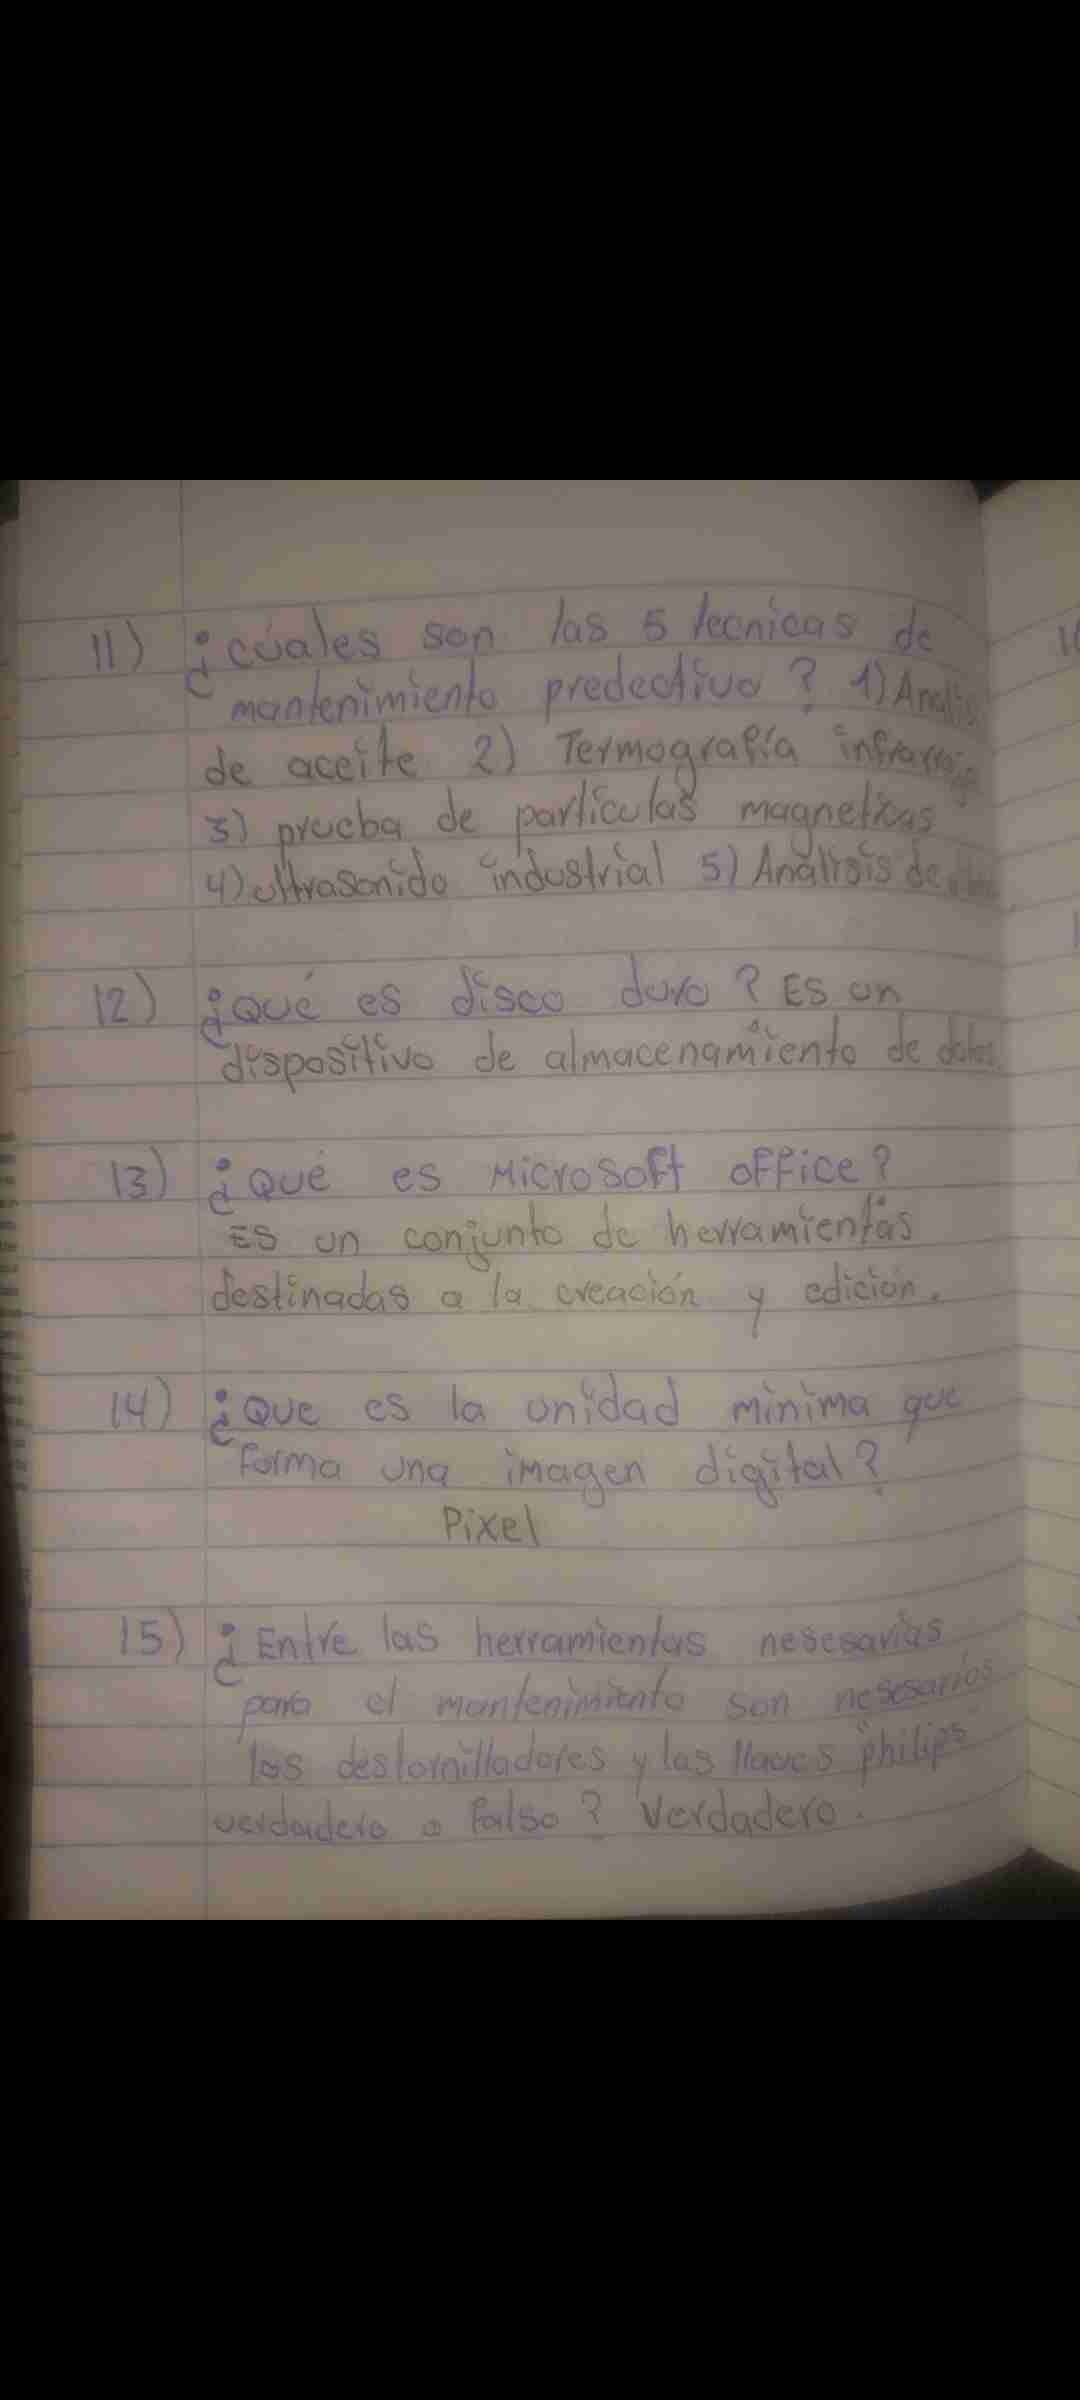 11) ¿cúales son las 5 tecnicas de
mantenimiento predectivo? 1) Analis
de aceite 2) Termografía infrarroja
3) prueba de particulas magneticas
4) ultrasonido industrial 5) Análisis de
12) ¿Qué es disco duro? Es un
dispositivo de almacenamiento de datos.
13) ¿Qué es Microsoft office?
Es un conjunto de herramientas
destinadas a la creación y edición.
14) ¿Que es la unidad minima que
forma una imagen digital?
Pixel
15) ¿Entre las herramientas nesesarias
para el mantenimiento son nesesarios
los destornilladores y las llaves philips
verdadero o falso? Verdadero.